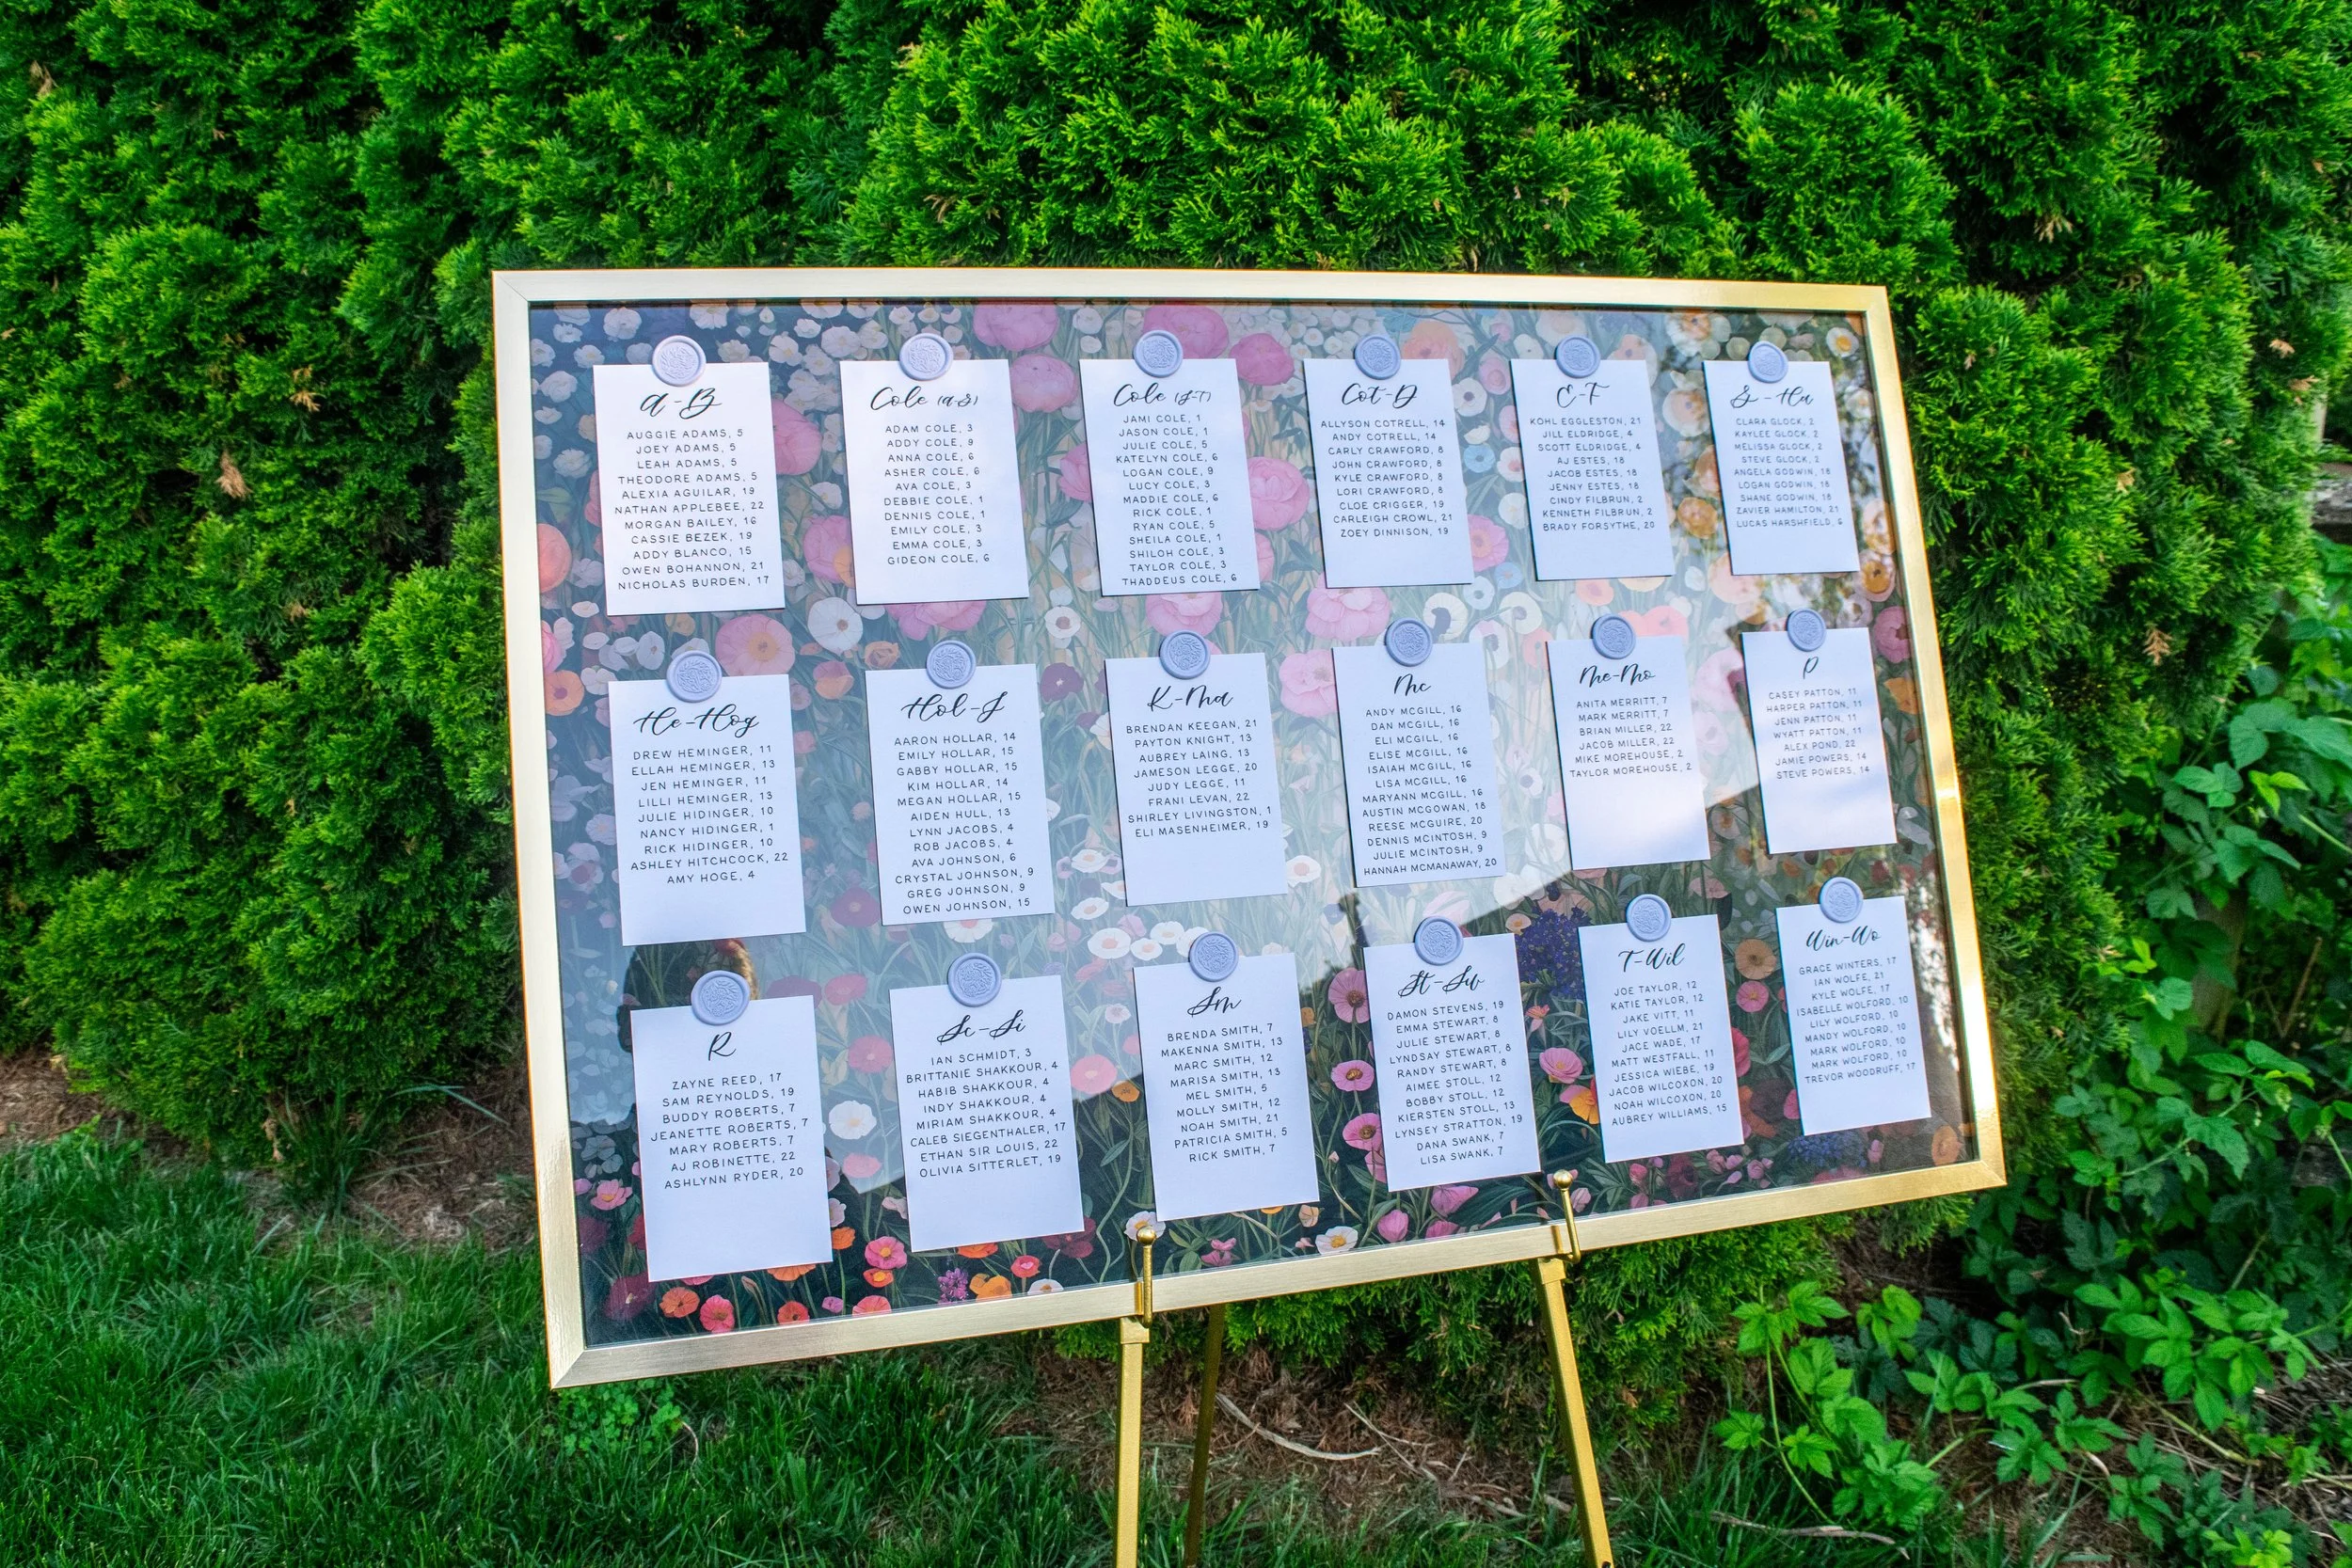 A-B
AUGGIE ADAMS, 5
JOEY ADAMS, 5
LEAH ADAMS, 5
THEODORE ADAMS, 5
ALEXIA AGUILAR, 19
NATHAN APPLEBEE, 22
MORGAN BAILEY, 16
CASSIE BEZEK, 19
ADDY BLANCO, 15
OWEN BOHANNON, 21
NICHOLAS BURDEN, 17
Cole (A-G)
ADAM COLE, 3
ADDY COLE, 9
ANNA COLE, 6
ASHER COLE, 6
AVA COLE, 3
DEBBIE COLE, 1
DENNIS COLE, 1
EMILY COLE, 3
EMMA COLE, 3
GIDEON COLE, 6
Cole (J-T)
JAMI COLE, 1
JASON COLE, 1
JULIE COLE, 5
KATELYN COLE, 6
LOGAN COLE, 9
LUCY COLE, 3
MADDIE COLE, 6
RICK COLE, 1
RYAN COLE, 5
SHEILA COLE, 1
SHILOH COLE, 3
TAYLOR COLE, 3
THADDEUS COLE, 6
Cot-D
ALLYSON COTRELL, 14
ANDY COTRELL, 14
CARLY CRAWFORD, 8
JOHN CRAWFORD, 8
KYLE CRAWFORD, 8
LORI CRAWFORD, 8
CLOE CRIGGER, 19
CARLEIGH CROWL, 21
ZOEY DINNISON, 19
E-F
KOHL EGGLESTON, 21
JILL ELDRIDGE, 4
SCOTT ELDRIDGE, 4
AJ ESTES, 18
JACOB ESTES, 18
JENNY ESTES, 18
CINDY FILBRUN, 2
KENNETH FILBRUN, 2
BRADY FORSYTHE, 20
G-Ha
CLARA GLOCK, 2
KAYLEE GLOCK, 2
MELISSA GLOCK, 2
STEVE GLOCK, 2
ANGELA GODWIN, 18
LOGAN GODWIN, 18
SHANE GODWIN, 18
ZAVIER HAMILTON, 21
LUCAS HARSHFIELD, 6
He-Hog
DREW HEMINGER, 11
ELLAH HEMINGER, 13
JEN HEMINGER, 11
LILLI HEMINGER, 13
JULIE HIDINGER, 10
NANCY HIDINGER, 1
RICK HIDINGER, 10
ASHLEY HITCHCOCK, 22
AMY HOGE, 4
Hol-J
AARON HOLLAR, 14
EMILY HOLLAR, 15
GABBY HOLLAR, 15
KIM HOLLAR, 14
MEGAN HOLLAR, 15
AIDEN HULL, 13
LYNN JACOBS, 4
ROB JACOBS, 4
AVA JOHNSON, 6
CRYSTAL JOHNSON, 9
GREG JOHNSON, 9
OWEN JOHNSON, 15
K-Ma
BRENDAN KEEGAN, 21
PAYTON KNIGHT, 13
AUBREY LAING, 13
JAMESON LEGGE, 20
JUDY LEGGE, 11
FRANI LEVAN, 22
SHIRLEY LIVINGSTON, 1
ELI MASENHEIMER, 19
Mc
ANDY MCGILL, 16
DAN MCGILL, 16
ELI MCGILL, 16
ELISE MCGILL, 16
ISAIAH MCGILL, 16
LISA MCGILL, 16
MARYANN MCGILL, 16
AUSTIN MCGOWAN, 18
REESE MCGUIRE, 20
DENNIS MCINTOSH, 9
JULIE MCINTOSH, 9
HANNAH MCMANAWAY, 20
Me-Mo
ANITA MERRITT, 7
MARK MERRITT, 7
BRIAN MILLER, 22
JACOB MILLER, 22
MIKE MOREHOUSE, 2
TAYLOR MOREHOUSE, 2
P
CASEY PATTON, 11
HARPER PATTON, 11
JENN PATTON, 11
WYATT PATTON, 11
ALEX POND, 22
JAMIE POWERS, 14
STEVE POWERS, 14
R
ZAYNE REED, 17
SAM REYNOLDS, 19
BUDDY ROBERTS, 7
JEANETTE ROBERTS, 7
MARY ROBERTS, 7
AJ ROBINETTE, 22
ASHLYNN RYDER, 20
Sc-Si
IAN SCHMIDT, 3
BRITTANIE SHAKKOUR, 4
HABIB SHAKKOUR, 4
INDY SHAKKOUR, 4
MIRIAM SHAKKOUR, 4
CALEB SIEGENTHALER, 17
ETHAN SIR LOUIS, 22
OLIVIA SITTERLET, 19
Sm
BRENDA SMITH, 7
MAKENNA SMITH, 13
MARC SMITH, 12
MARISA SMITH, 13
MEL SMITH, 5
MOLLY SMITH, 12
NOAH SMITH, 21
PATRICIA SMITH, 5
RICK SMITH, 7
St-Sw
DAMON STEVENS, 19
EMMA STEWART, 8
JULIE STEWART, 8
LYNDSAY STEWART, 8
RANDY STEWART, 8
AIMEE STOLL, 12
BOBBY STOLL, 12
KIERSTEN STOLL, 13
LYNSEY STRATTON, 19
DANA SWANK, 7
LISA SWANK, 7
T-Wil
JOE TAYLOR, 12
KATIE TAYLOR, 12
JAKE VITT, 11
LILY VOELLM, 21
JACE WADE, 17
MATT WESTFALL, 11
JESSICA WIEBE, 19
JACOB WILCOXON, 20
NOAH WILCOXON, 20
AUBREY WILLIAMS, 15
Win-Wo
GRACE WINTERS, 17
IAN WOLFE, 21
KYLE WOLFE, 17
ISABELLE WOLFORD, 10
LILY WOLFORD, 10
MANDY WOLFORD, 10
MARK WOLFORD, 10
MARK WOLFORD, 10
TREVOR WOODRUFF, 17